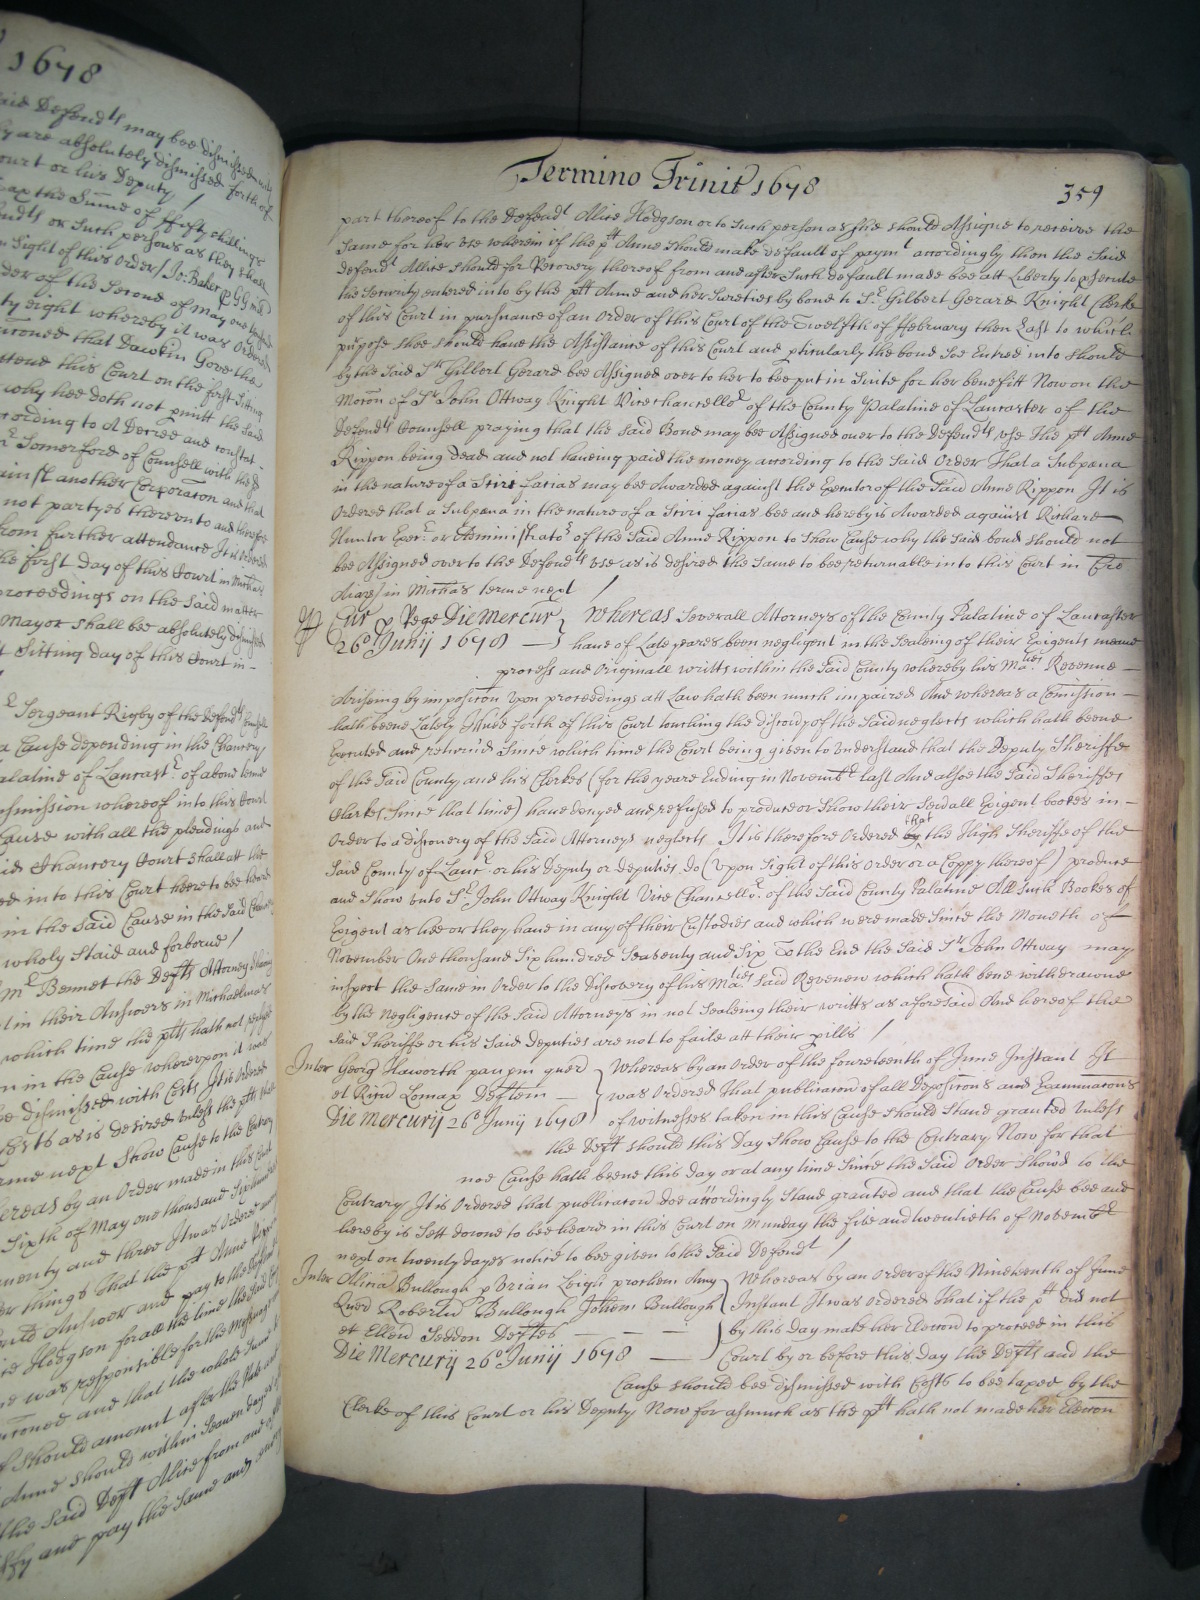 1678
said Defendts may bee dismissed
they are absolutely dismissed forth of
Court or his Deputy /
tax the Summe of ffifty shillings
Defendts or such persons as they shall
on sight of this Order / Jo: Baker
Order of the Second of May one thousd
ty eight whereby it was Ordered
that Dawkin Gove the
attend this Court on the first sitting
why hee doth not permitt the said
according to A Decree and constat
Mr Somerford of Councell with the sd
against another Corporacon and that
not partyes thereunto and therefore
from further attendance It is ordered
the first day of this Court in Micħas
proceedings on the said matter
Mayor shall bee absolutely dismissed
t sitting day of this Court in
Mr Sergeant Rigby of the Defendts Councell
a Cause depending in the Chancery
Palatine of Lancastr of about tenne
dismission whereof into this Court
Cause with all the pleadings and
said Chancery Court shall att the
ed into this Court heere to bee heard
in the said Cause in the said Chancery
wholy staid and forborne /
Mr Bennet the Defts Attorney
in their Answers in Michaelmas
which time the plts hath not
in the Cause whereupon it was
bee dismissed with Costs It is ordered
Costs as is desired unless the plt
terme next show Cause to the Contrary
Whereas by an Order made in this Court
Sixth of May one thousand Six hundred
seventy and three It was Ordered
other things That the plt Anne Rippon
should Answer and pay to the Defendt
Alice Hodgson for all the time the said
she was responsible for the messuage
menconed and that the whole summe
if should amount after the Rate
Anne should within seaven dayes
the said Deft Alice from and
satisfy and pay the same and
Termino Trinit 1678
359
part thereof to the Defendt Alice Hodgson or to such person as shee should Assigne to receive the
same for her use wherein if the plt Anne should make default of paymt accordingly then the said
Defendt Allice should for Recovery thereof from and after such default made bee att Liberty to prsecute
the Security entered into by the plt Anne and her Sureties by bond to Sr Gilbert Gerard Knight Clerke
of this Court in pursuance of an Order of this Court of the Twelfth of ffebruary then Last to which
purpose shee should have the Assistance of this Court and pticularly the bond soe Entred into should
by the said Sr Gilbert Gerard bee Assigned over to her to bee put in Suite for her benefitt Now on the
Mocon of Sr John Ottway Knight Vicechancellor of the County Palatine of Lancaster of the
Defendts Councell praying that the said Bond may bee Assigned over to the Defendts use The plt Anne
Rippon being dead and not haveing paid the money according to the said Order That a Subpena
in the nature of a Scire facias may bee Awarded against the Executor of the said Anne Rippon It is
Ordered that a Subpæna in the nature of a Scire facias bee and hereby is Awarded against Richard
Hunter Execr or Administrator of the said Anne Rippon to show Cause why the said bond should not
bee Assigned over to the Defendts use as is desired the same to bee returnable into this Court in Cro
Aiarū in Micħas terme next /
Cur p Rege Die Mercur
26o Junij 1678
Whereas Severall Attorneys of the County Palatine of Lancaster
have of Late yeares been negligent in the Sealeing of their Exigents meane
process and Originall writts within the said County whereby his Maties Revenue
Ariseing by imposicon upon proceedings att Law hath been much impaired And whereas a Comission
hath beene Lately Issued forth of this Court touching the discovy of the said neglects which hath beene
Executed and returned Since which time the Court being given to understand that the Deputy Sheriffe
of the said County and his Clerkes (for the yeare Ending in Novembr last And alsoe the said Sheriffes
Clarkes since that time) have denyed and refused to produce or show their severall Exigent bookes in
Order to a discovery of the said Attorneys neglects It is therefore Ordered by that the High Sheriffe of the
said County of Lancr or his Deputy or deputies do (upon sight of this Order or a Coppy thereof) produce
and show unto Sr John Ottway Knight Vice Chancellor of the said County Palatine All such Bookes of
Exigent as hee or they have in any of their Custodies and which were made Since the Moneth of
November One thousand Six hundred Seaventy and Six To the End the said Sr John Ottway may
inspect the same in Order to the Discovery of his Maties said Revenew which hath bene withdrawne
by the negligence of the said Attorneys in not Sealeing their writts as aforesaid And hereof the
said Sheriffe or his said Deputies are not to faile att their pills /
Inter Georg Haworth paupm quer
et Ricū Lomax Deftem
Die Mercurij 26o Junij 1678
Whereas by an Order of the foureteenth of June Instant It
was Ordered That publicacon of all Deposicons and Examinacons
of witnesses taken in this Cause should stand granted Unless
the Deft should this Day show Cause to the Contrary Now for that
noe Cause hath beene this Day or at any time Since the said Order show'd to the
Contrary It is Ordered that publicacon doe accordingly stand granted and that the Cause bee and
hereby is sett downe to bee heard in this Court on Munday the five and twentieth of Novembr
next on twenty dayes notice to bee given to the said Defendt /
Inter Aliciā Bullough p Brian Leigh prochein Amy
Quer Robertū Bullough Johem Bullough
et Ellenā Seddon Deftes
Die Mercurij 26o Junij 1678
Whereas by an Order of the Nineteenth of June
Instant It was Ordered That if the plt did not
by this day make her Eleccon to proceed in this
Court by or before this day the Defts and the
Cause should bee dismissed with Costs to bee taxed by the
Clerke of this Court or his Deputy Now for asmuch as the plt hath not made her Eleccon